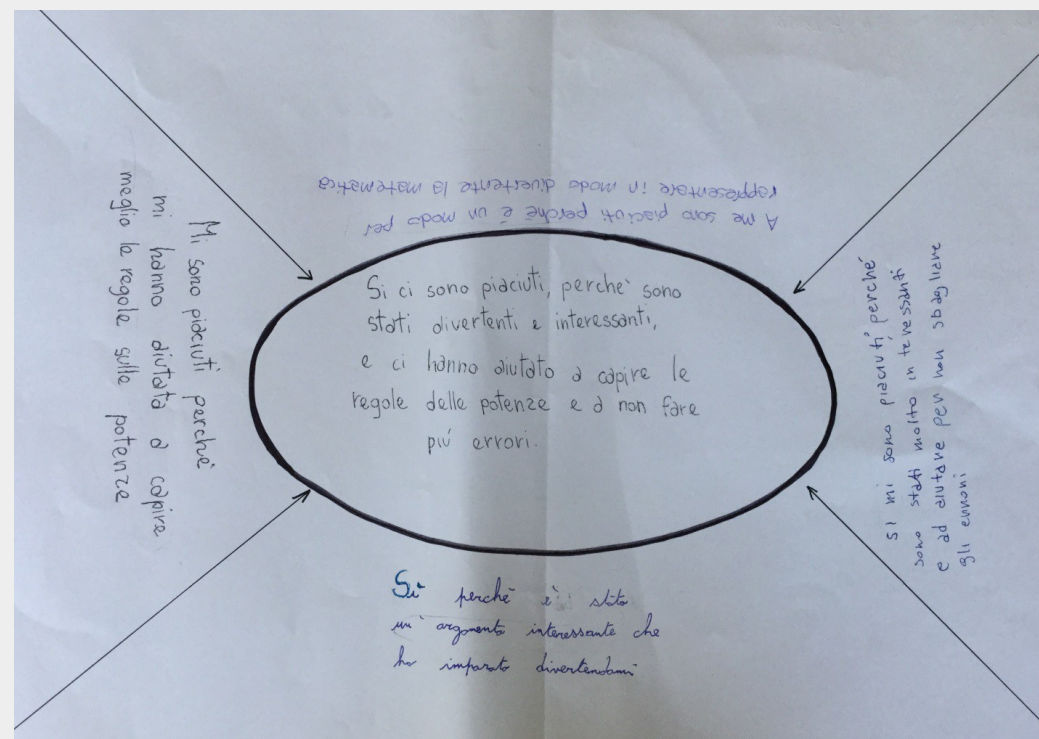 A me sono piaciuti perché è un modo per
rappresentare in modo divertente la matematica
Mi sono piaciuti perché
mi hanno aiutato a capire
meglio le regole sulle potenze
Si ci sono piaciuti, perche' sono
stati divertenti e interessanti,
e ci hanno aiutato a capire le
regole delle potenze e a non fare
più errori.
Si mi sono piaciuti perché
sono stati molto interessanti
e ad aiutare per non sbagliare
gli errori
Sì perchè è stato
un' argomento interessante che
ho imparato divertendomi